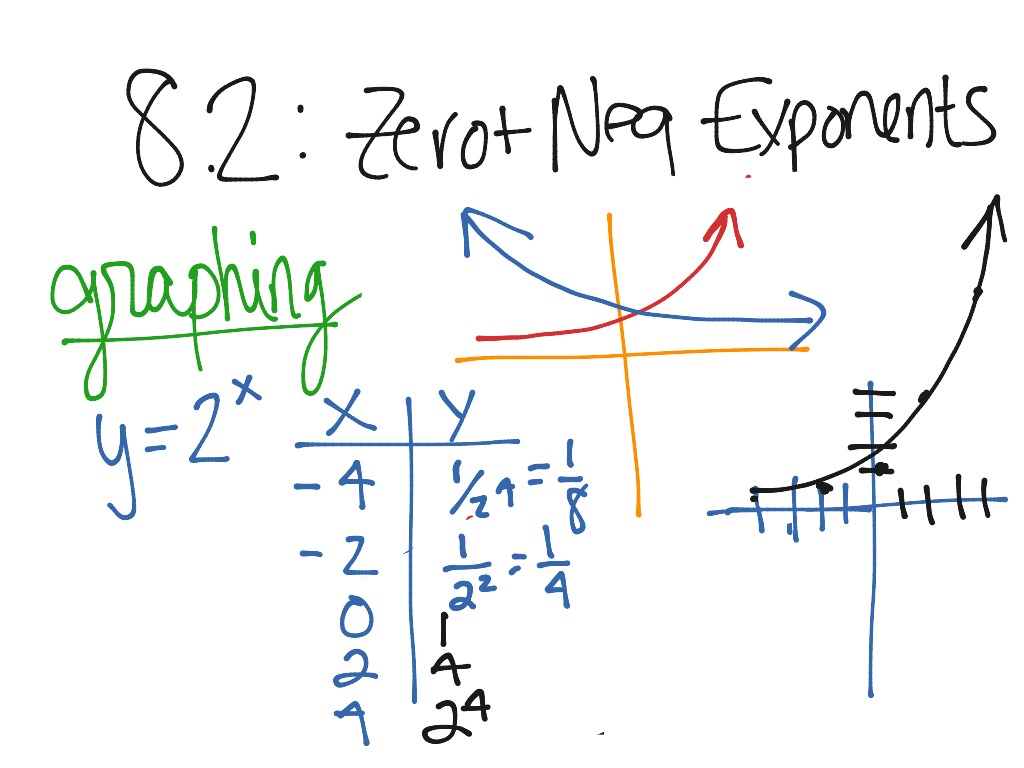 8.2: Zero + Neg Exponents
graphing
y = 2^x
x y
-4 1/2^4 = 1/8
-2 1/2^2 = 1/4
0 1
2 4
4 2^4